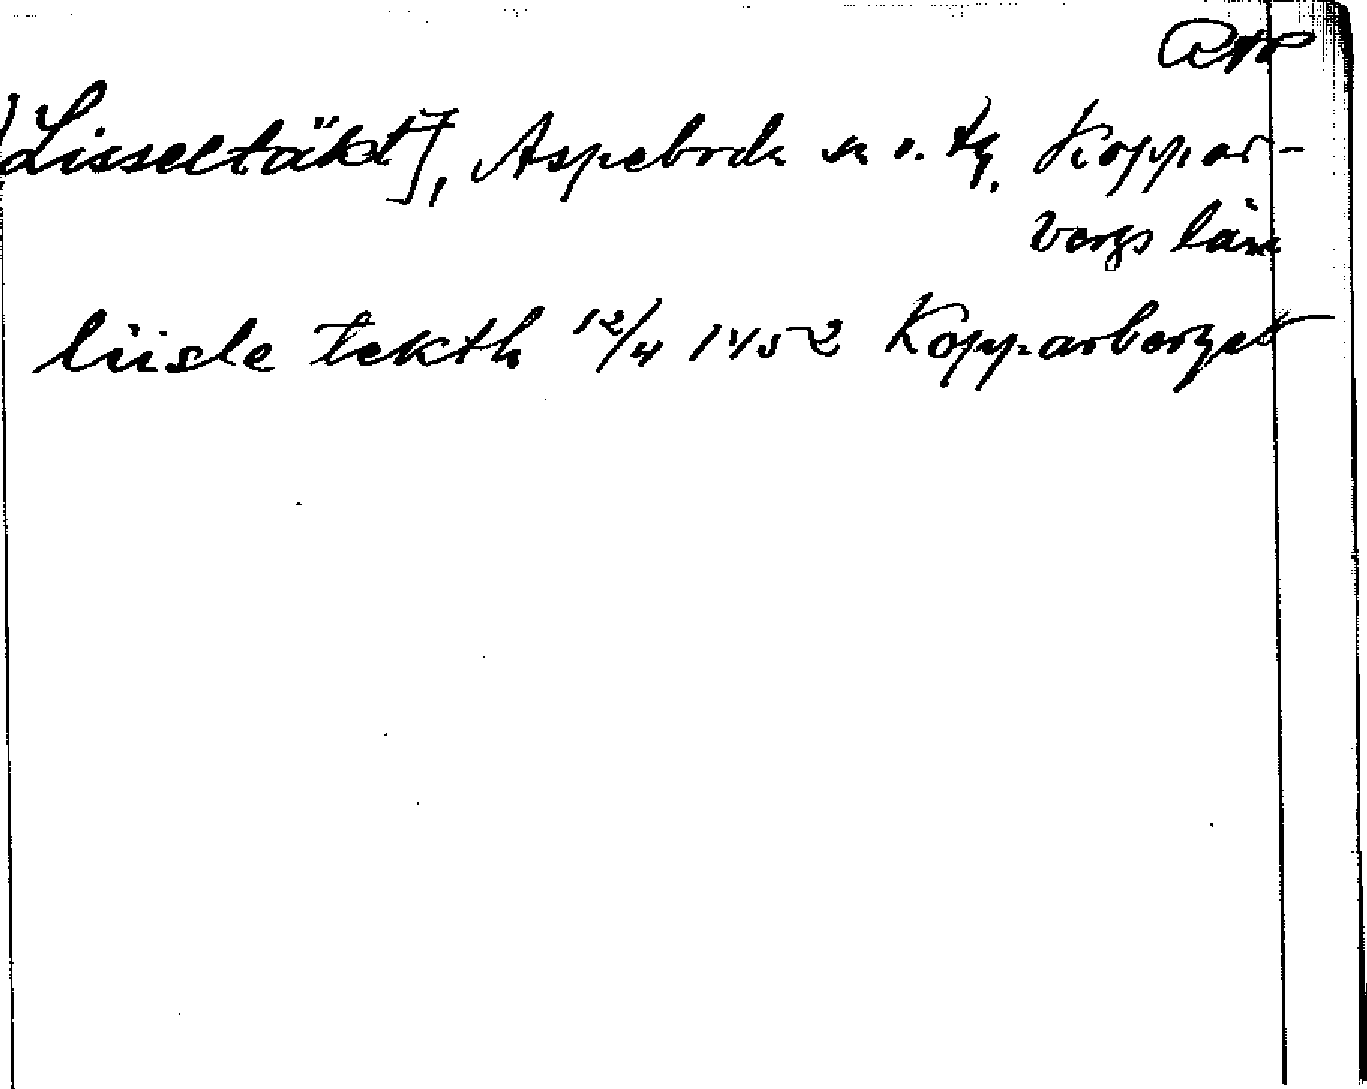 RAP
[Lisseltäkt], Aspeboda sn o. tg. Koppar-
bergs län
liisle tekth 12/4 1452 Kopparberget